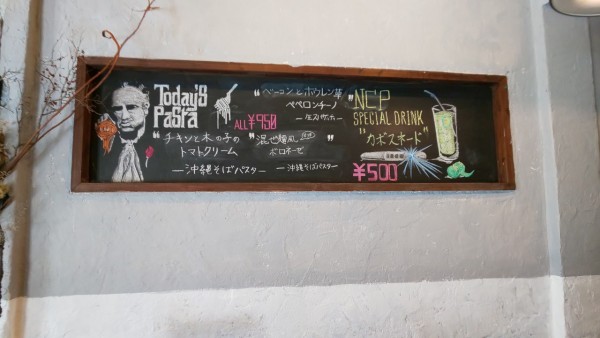 Today's
Pasta
ALL ¥950
"チキンと木の子の
トマトクリーム
―沖縄そばパスタ―
"ベーコンとホウレン草
ペペロンチーノ
"混ぜ麺風
ボロネーゼ
―沖縄そばパスタ―
"NCP
SPECIAL DRINK
"カボスネード"
¥500